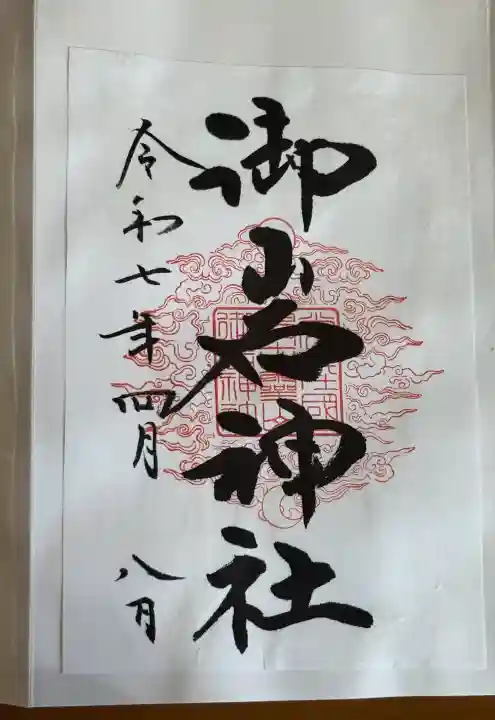 御岩神社
令和七年四月 八日